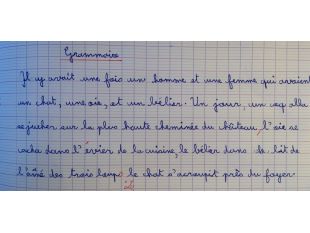 Grammaire
Il y avait une fois un homme et une femme qui avaient
un chat, une oie, et un bélier. Un jour, un coq alla
se jucher sur la plus haute cheminée du château, l'oie se
cacha dans l'évier de la cuisine, le bélier dans le lit de
l'aîné des trois loups le chat s'accroupit près du foyer.